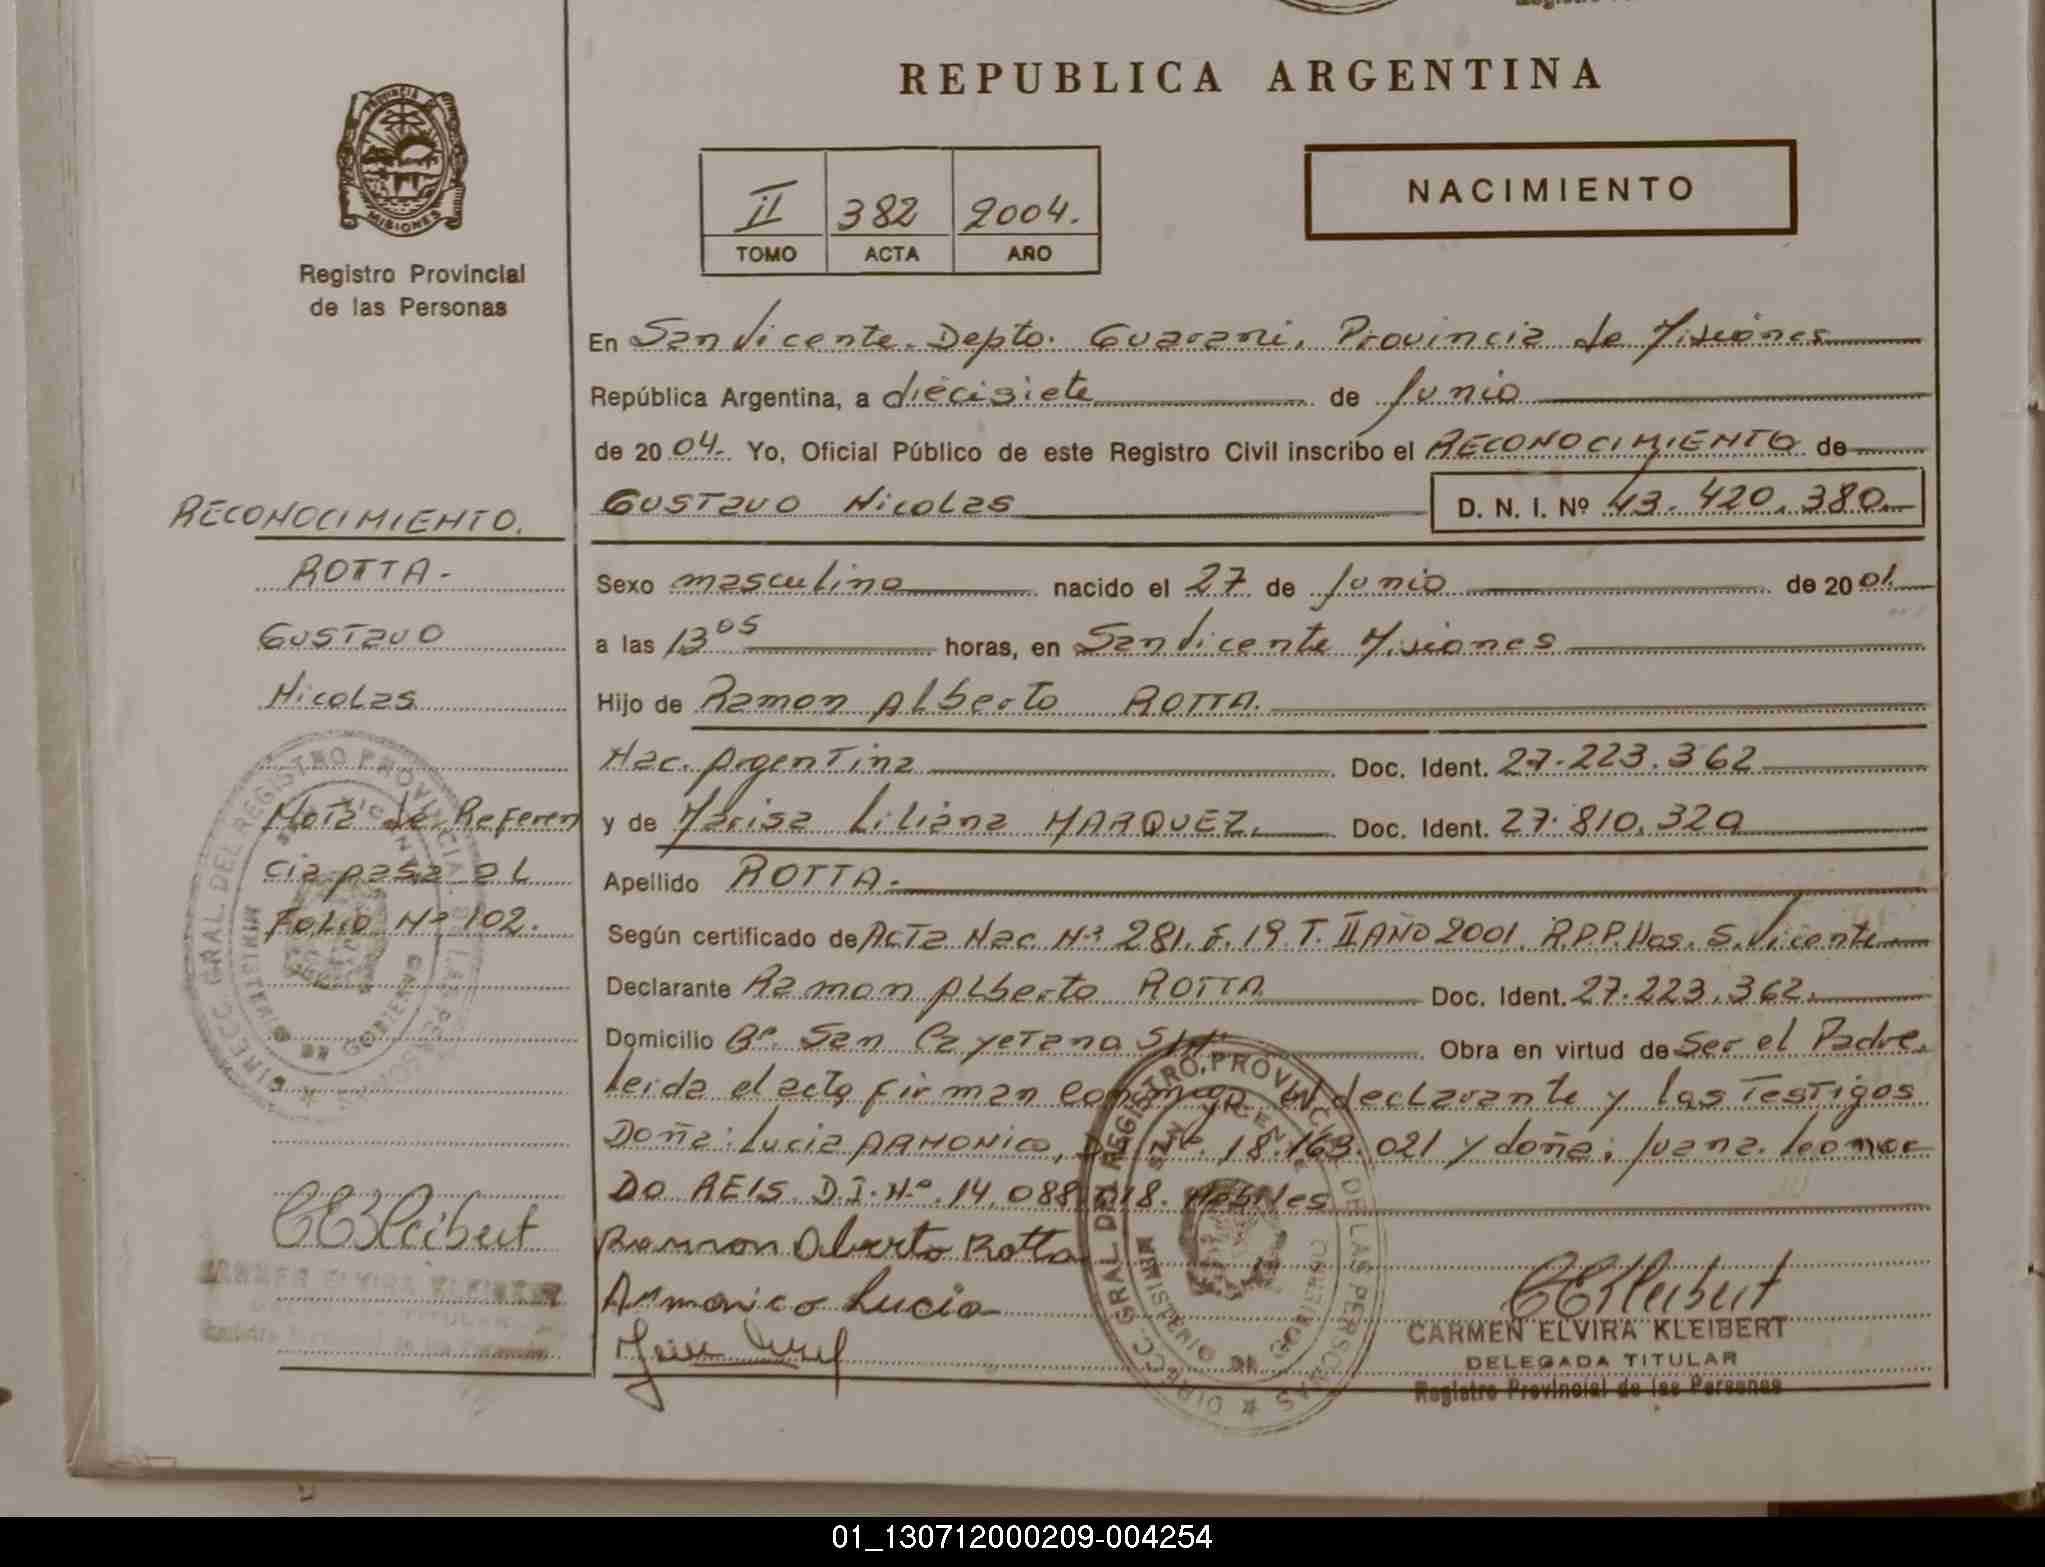 REPUBLICA ARGENTINA
PROVINCIA DE
MISIONES
Registro Provincial
de las Personas
II 382 2004.
TOMO ACTA AÑO
NACIMIENTO
En San Vicente. Depto. Guarani, Provincia de Misiones
República Argentina, a diecisiete de Junio
de 2004. Yo, Oficial Público de este Registro Civil inscribo el RECONOCIMIENTO de
Gustavo Nicolas D. N. I. Nº 43.420.380.
Sexo masculino nacido el 27 de Junio de 2001.
a las 13 05 horas, en San Vicente Misiones
Hijo de Ramon Alberto ROTTA.
Nac. Argentina Doc. Ident. 27.223.362
y de Marisa Liliana MARQUEZ. Doc. Ident. 27.810.320
Apellido ROTTA.
Según certificado de Acta Nac Nº 281. F. 19. T. II AÑO 2001. R.P.P. S. Vicente
Declarante Ramon Alberto ROTTA Doc. Ident. 27.223.362.
Domicilio Bº. San Cayetano S/Nº Obra en virtud de Ser el Padre.
leida el acta firman conmigo el declarante y las Testigos
Doña: Lucia ARMONICO, 18.163.021 y doña: Juana
D.I. Nº. 14.088. Habiles
Ramon Alberto Rotta
Armonico Lucia
CEKleibert
CARMEN ELVIRA KLEIBERT
DELEGADA TITULAR
Registro Provincial de las Personas
DIRECC. GRAL. DEL REGISTRO PROVINCIAL DE LAS PERSONAS
SAN VICENTE
MINISTERIO DE GOBIERNO
RECONOCIMIENTO.
ROTTA.
Gustavo
Nicolas
Nota de Referen
cia pasa al
Folio Nº 102.
DIRECC. GRAL. DEL REGISTRO PROVINCIAL DE LAS PERSONAS
MINISTERIO DE GOBIERNO
CEKleibert
CARMEN ELVIRA KLEIBERT
01_130712000209-004254